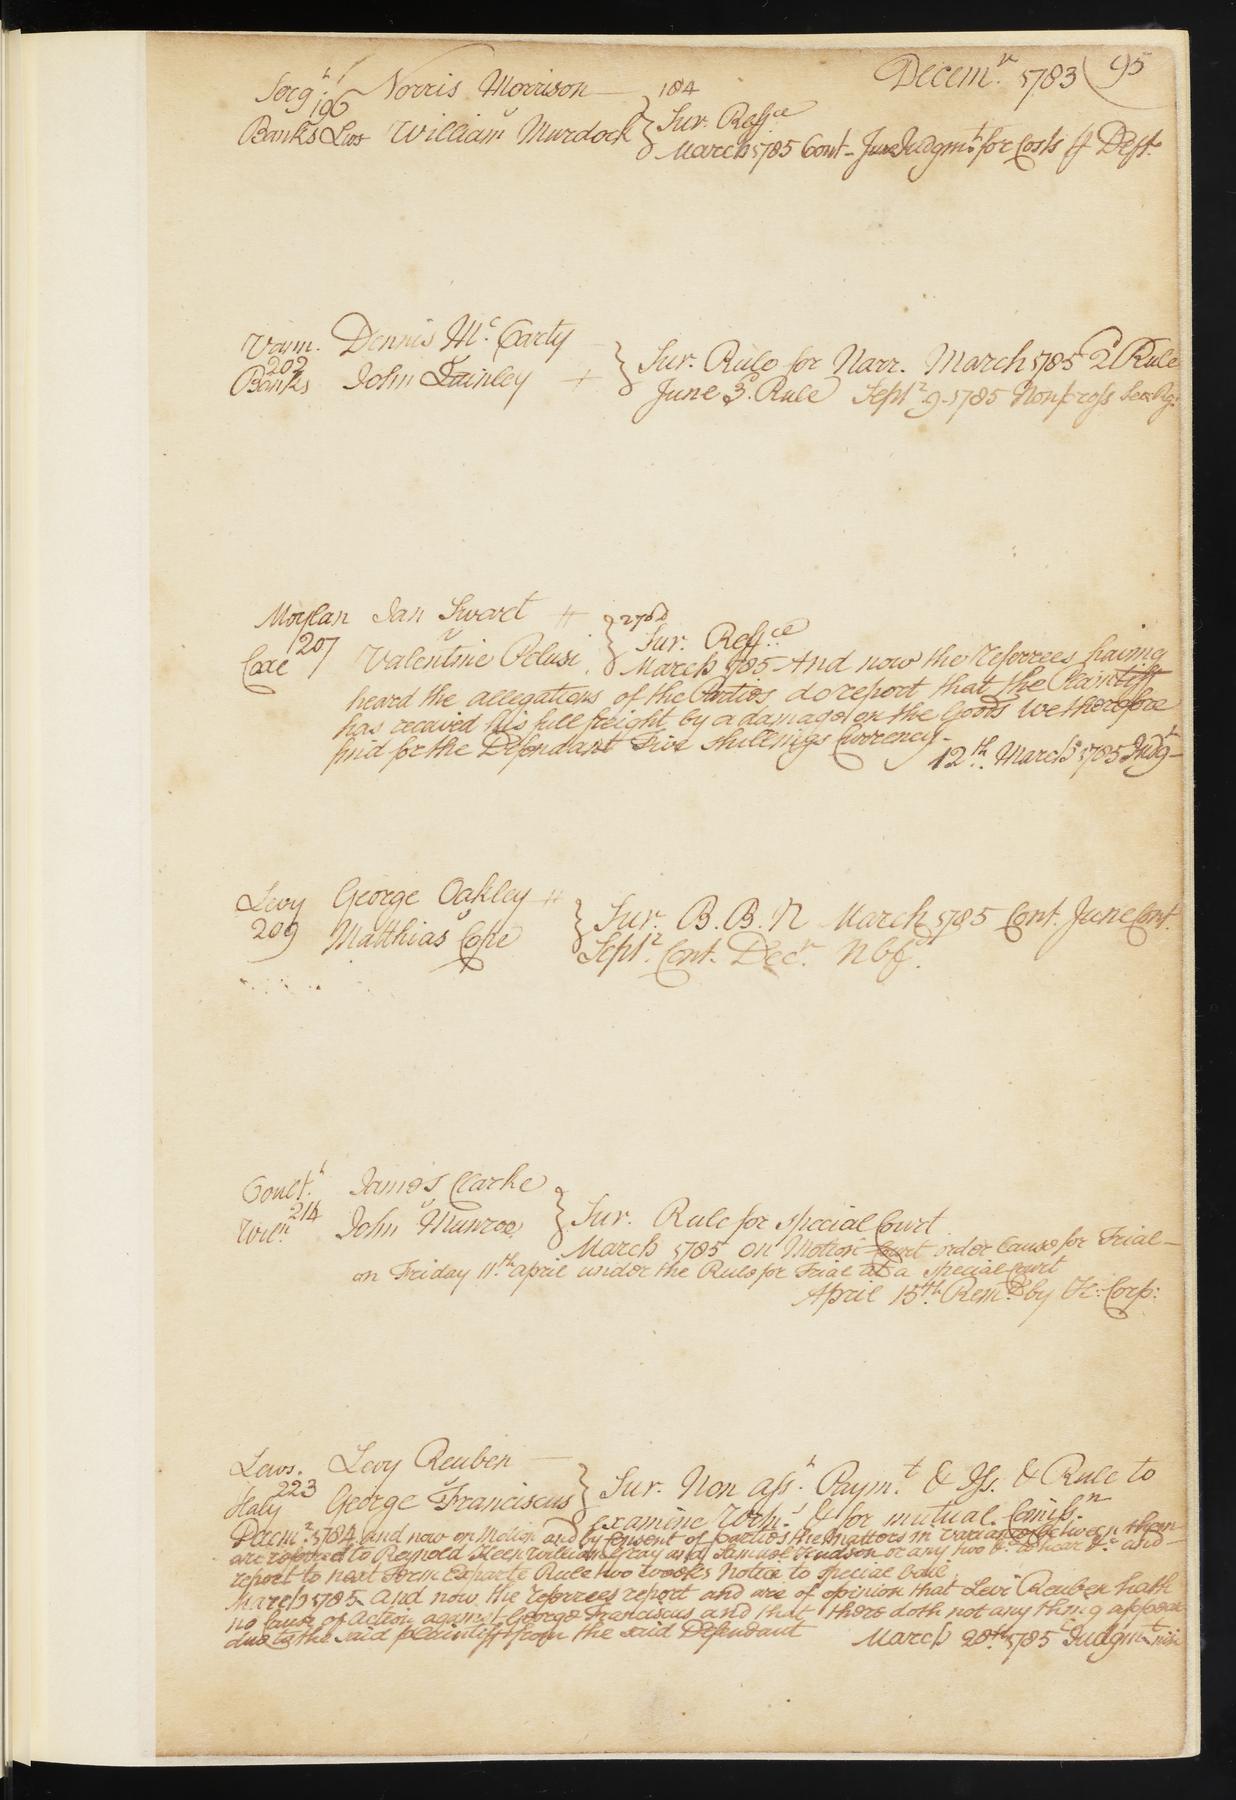 Decem.r 1783 95
Serg.t Norris Morrison 184
196 v
Banks Lws William Murdock Sur. Reff.ce
March 1785 Cont - June Judgm.t for Costs Deft.
Dennis Mc. Carty
202 v Sur. Rule for Narr. March 1785 2d Rule
Banks John Lainley June 3d. Rule Sept.r 9. 1785 Nonpross
Moylan Jan Swart 27
207 v Sur. Reff.ce
Coxe Valentine Pelusi March 1785 And now the Referees having
heard the allegations of the Parties do report that the Plaintiff
has received his full freight by a damage on the Goods We therefore
find for the Defendant Five shillings Currency -
12th. March 1785 Judg.t
Levy George Oakley
209 v Sur. B. B. N March 1785 Cont. June Cont.
Matthias Cope Sept.r Cont. Dec.r Nbf.
Coult.r James Clarke
214 v
Wil.n John Munroe Sur. Rule for special Court
March 1785 on Motion Court order Cause for Trial -
on Friday 11.th april under the Rule for Trial at a special Court
April 15th. Rem.d by H: Corp:
Lews. Levy Reuben
223 v
Haly George Franciscus Sur. Non ass.t Paym.t & Iss. & Rule to
examine Witn.s & for mutual Comiss.n
Decm.r 1784 and now on Motion and by Consent of parties the matters in variance between them
are referred to Reynold Keen William Gray and Samuel Hudson or any two &c to hear &c and
report to next Term Exparte Rule two weeks Notice to special bail
March 1785 and now the referrees report and are of opinion that Levi Reuben hath
no Cause of action against George Franciscus and that there doth not any thing appear
due to the said plaintiff from the said Defendant March 28th. 1785 Judgm.t nisi